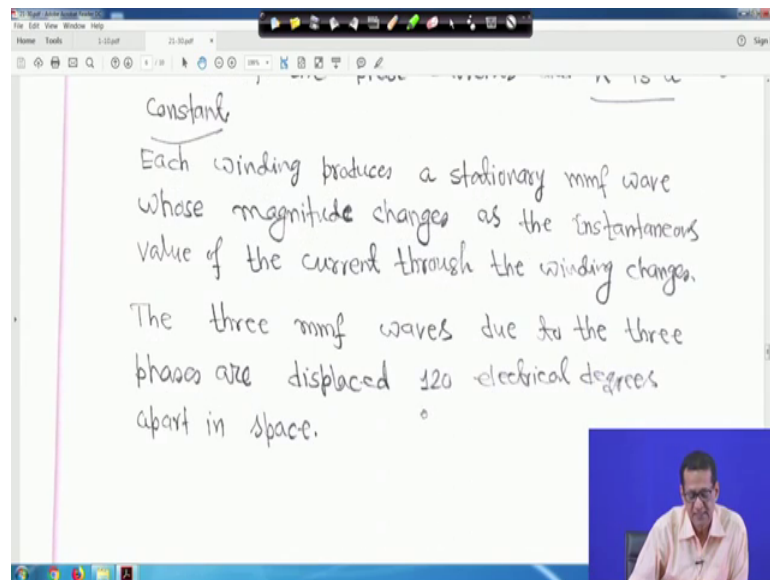 21-30.pdf - Adobe Acrobat Reader DC
File Edit View Window Help
Home Tools 1-10.pdf 21-30.pdf × Sign
constant.
Each winding produces a stationary mmf wave
whose magnitude changes as the instantaneous
value of the current through the winding changes.
The three mmf waves due to the three
phases are displaced 120 electrical degrees
apart in space.